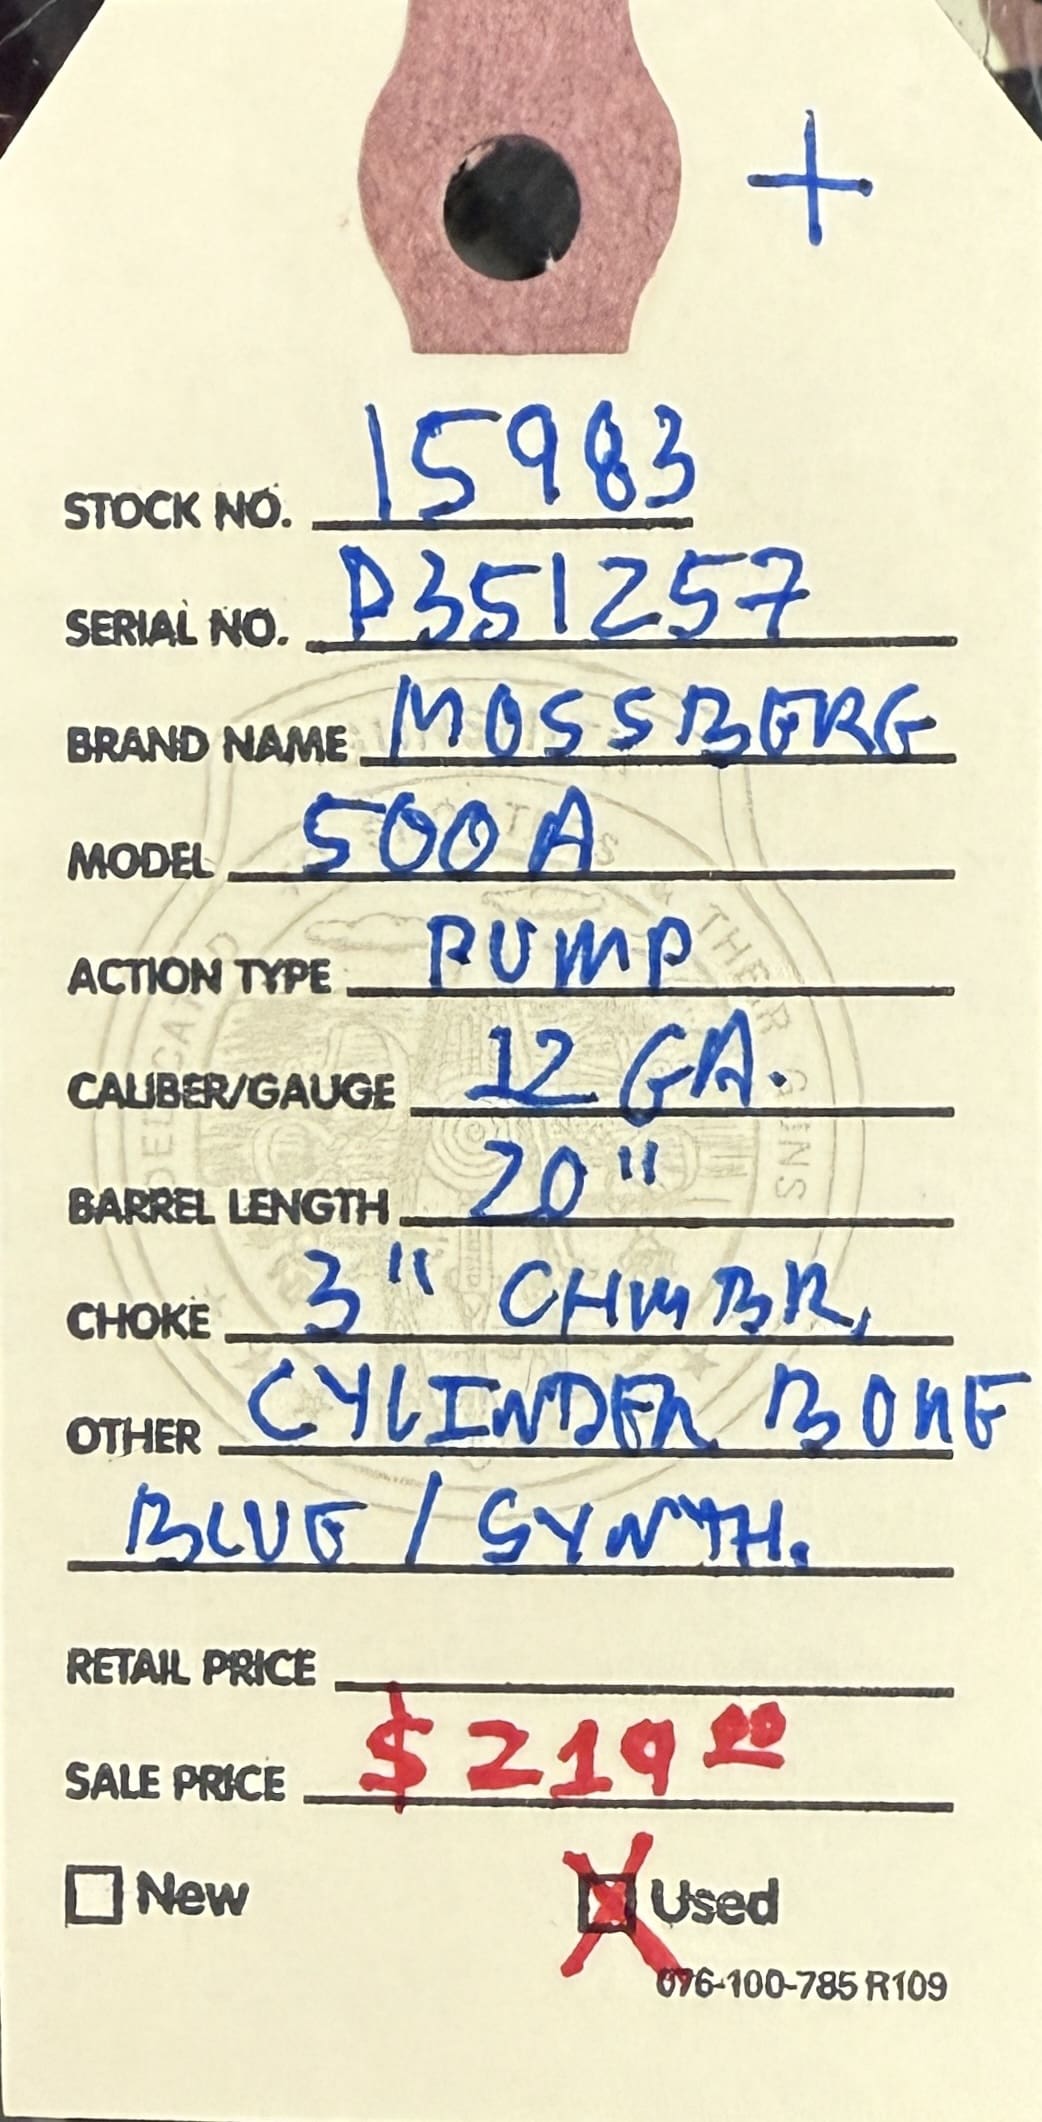 +
STOCK NO. 15983
SERIAL NO. P351257
BRAND NAME MOSSBERG
MODEL 500A
ACTION TYPE PUMP
CALIBER/GAUGE 12 GA.
BARREL LENGTH 20"
CHOKE 3" CHMBR,
OTHER CYLINDER BORE
BLUE / SYNTH.
RETAIL PRICE
SALE PRICE $219.00
New Used
076-100-785 R109